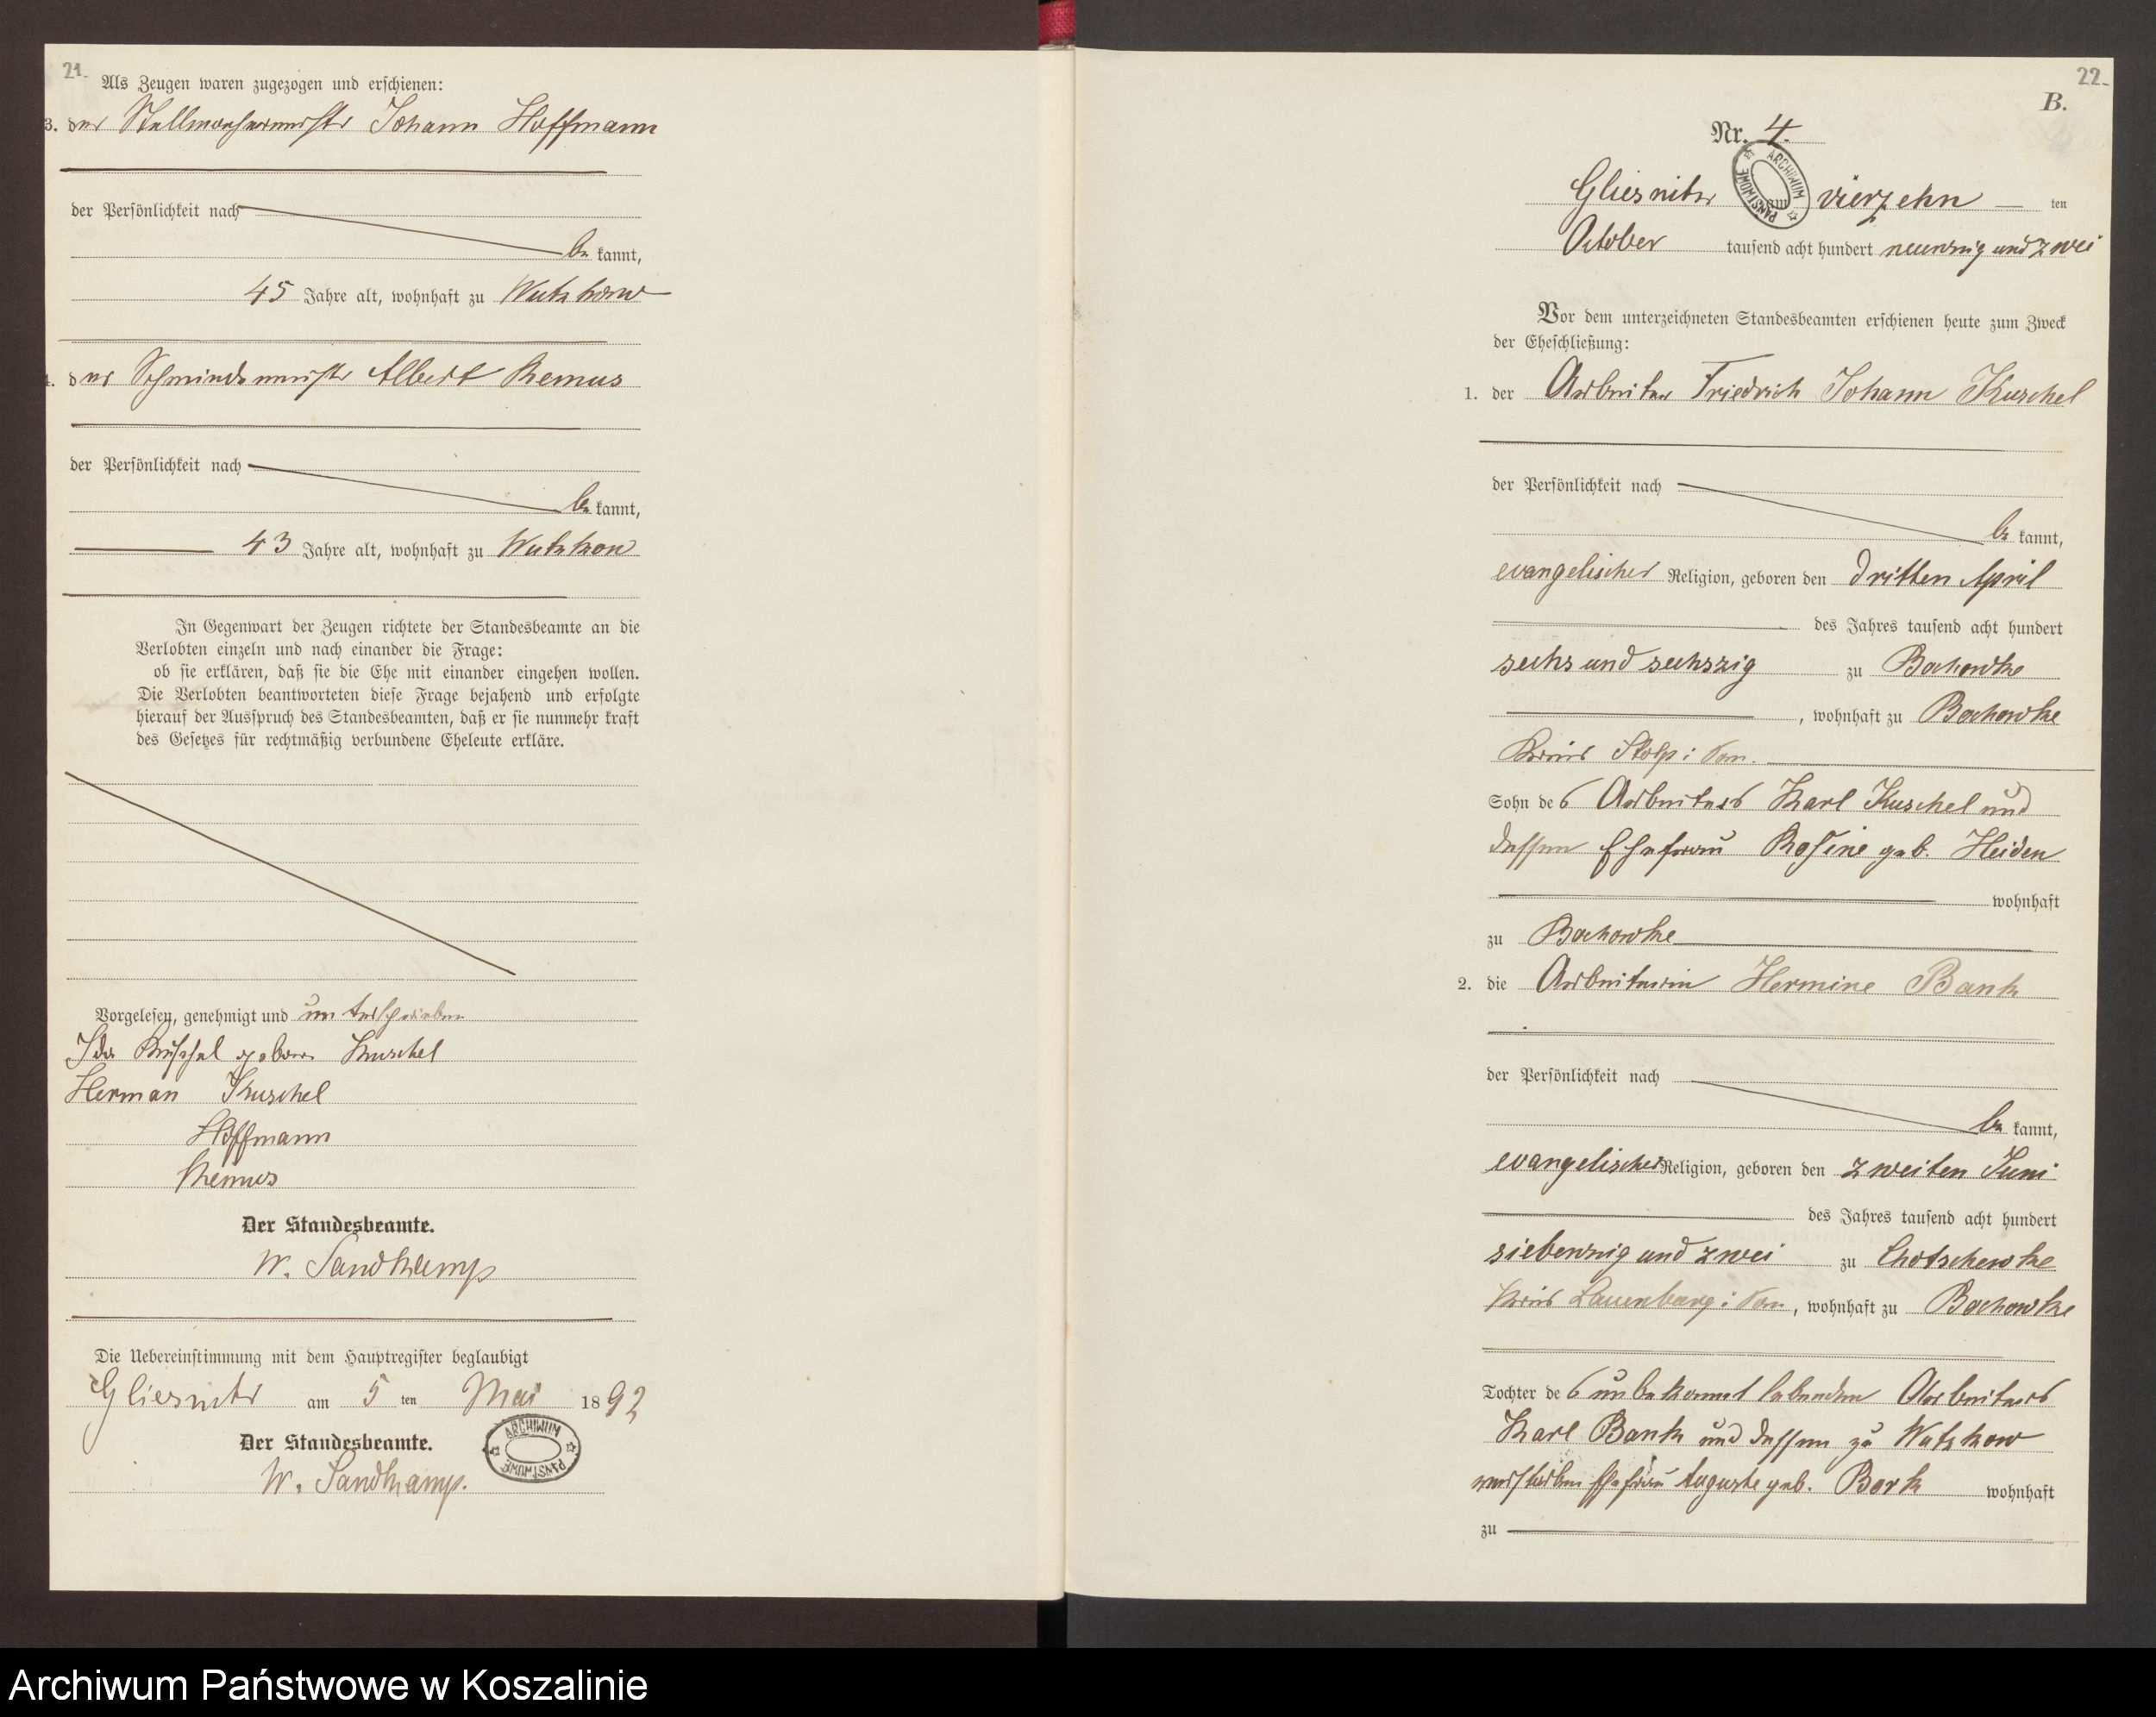 21.
Als Zeugen waren zugezogen und erschienen:
3. der Stellmachermeister Johann Hoffmann
der Persönlichkeit nach
be kannt,
45 Jahre alt, wohnhaft zu Wutzkow
4. der Schmiedemeister Albert Remus
der Persönlichkeit nach
be kannt,
43 Jahre alt, wohnhaft zu Wutzkow
In Gegenwart der Zeugen richtete der Standesbeamte an die
Verlobten einzeln und nach einander die Frage:
ob sie erklären, daß sie die Ehe mit einander eingehen wollen.
Die Verlobten beantworteten diese Frage bejahend und erfolgte
hierauf der Ausspruch des Standesbeamten, daß er sie nunmehr kraft
des Gesetzes für rechtmäßig verbundene Eheleute erkläre.
Vorgelesen, genehmigt und unterschrieben
Ida Kuschel geboren Kuschel
Herman Kuschel
Hoffmann
Remus
Der Standesbeamte.
W. Sandkamp
Die Uebereinstimmung mit dem Hauptregister beglaubigt
Gliesnitz am 5 ten Mai 1892
Der Standesbeamte.
W. Sandkamp.
ARCHIWUM PAŃSTWOWE
22.
B.
Nr. 4.
ARCHIWUM PAŃSTWOWE
Gliesnitz am vierzehn ten
October tausend acht hundert neunzig und zwei
Vor dem unterzeichneten Standesbeamten erschienen heute zum Zweck
der Eheschließung:
1. der Arbeiter Friedrich Johann Kuschel
der Persönlichkeit nach
be kannt,
evangelischer Religion, geboren den dritten April
des Jahres tausend acht hundert
sechs und sechszig zu Bochowke
, wohnhaft zu Bochowke
Kreis Stolp i Pom.
Sohn des Arbeiters Karl Kuschel und
dessen Ehefrau Rosine geb. Heiden
wohnhaft
zu Bochowke
2. die Arbeiterin Hermine Bank
der Persönlichkeit nach
be kannt,
evangelischer Religion, geboren den zweiten Juni
des Jahres tausend acht hundert
siebenzig und zwei zu Chotschewke
Kreis Lauenburg i Pom, wohnhaft zu Bochowke
Tochter des unbekannt lebenden Arbeiters
Karl Bank und dessen zu Wutzkow
verstorben Ehefrau Auguste geb. Bork wohnhaft
zu
Archiwum Państwowe w Koszalinie